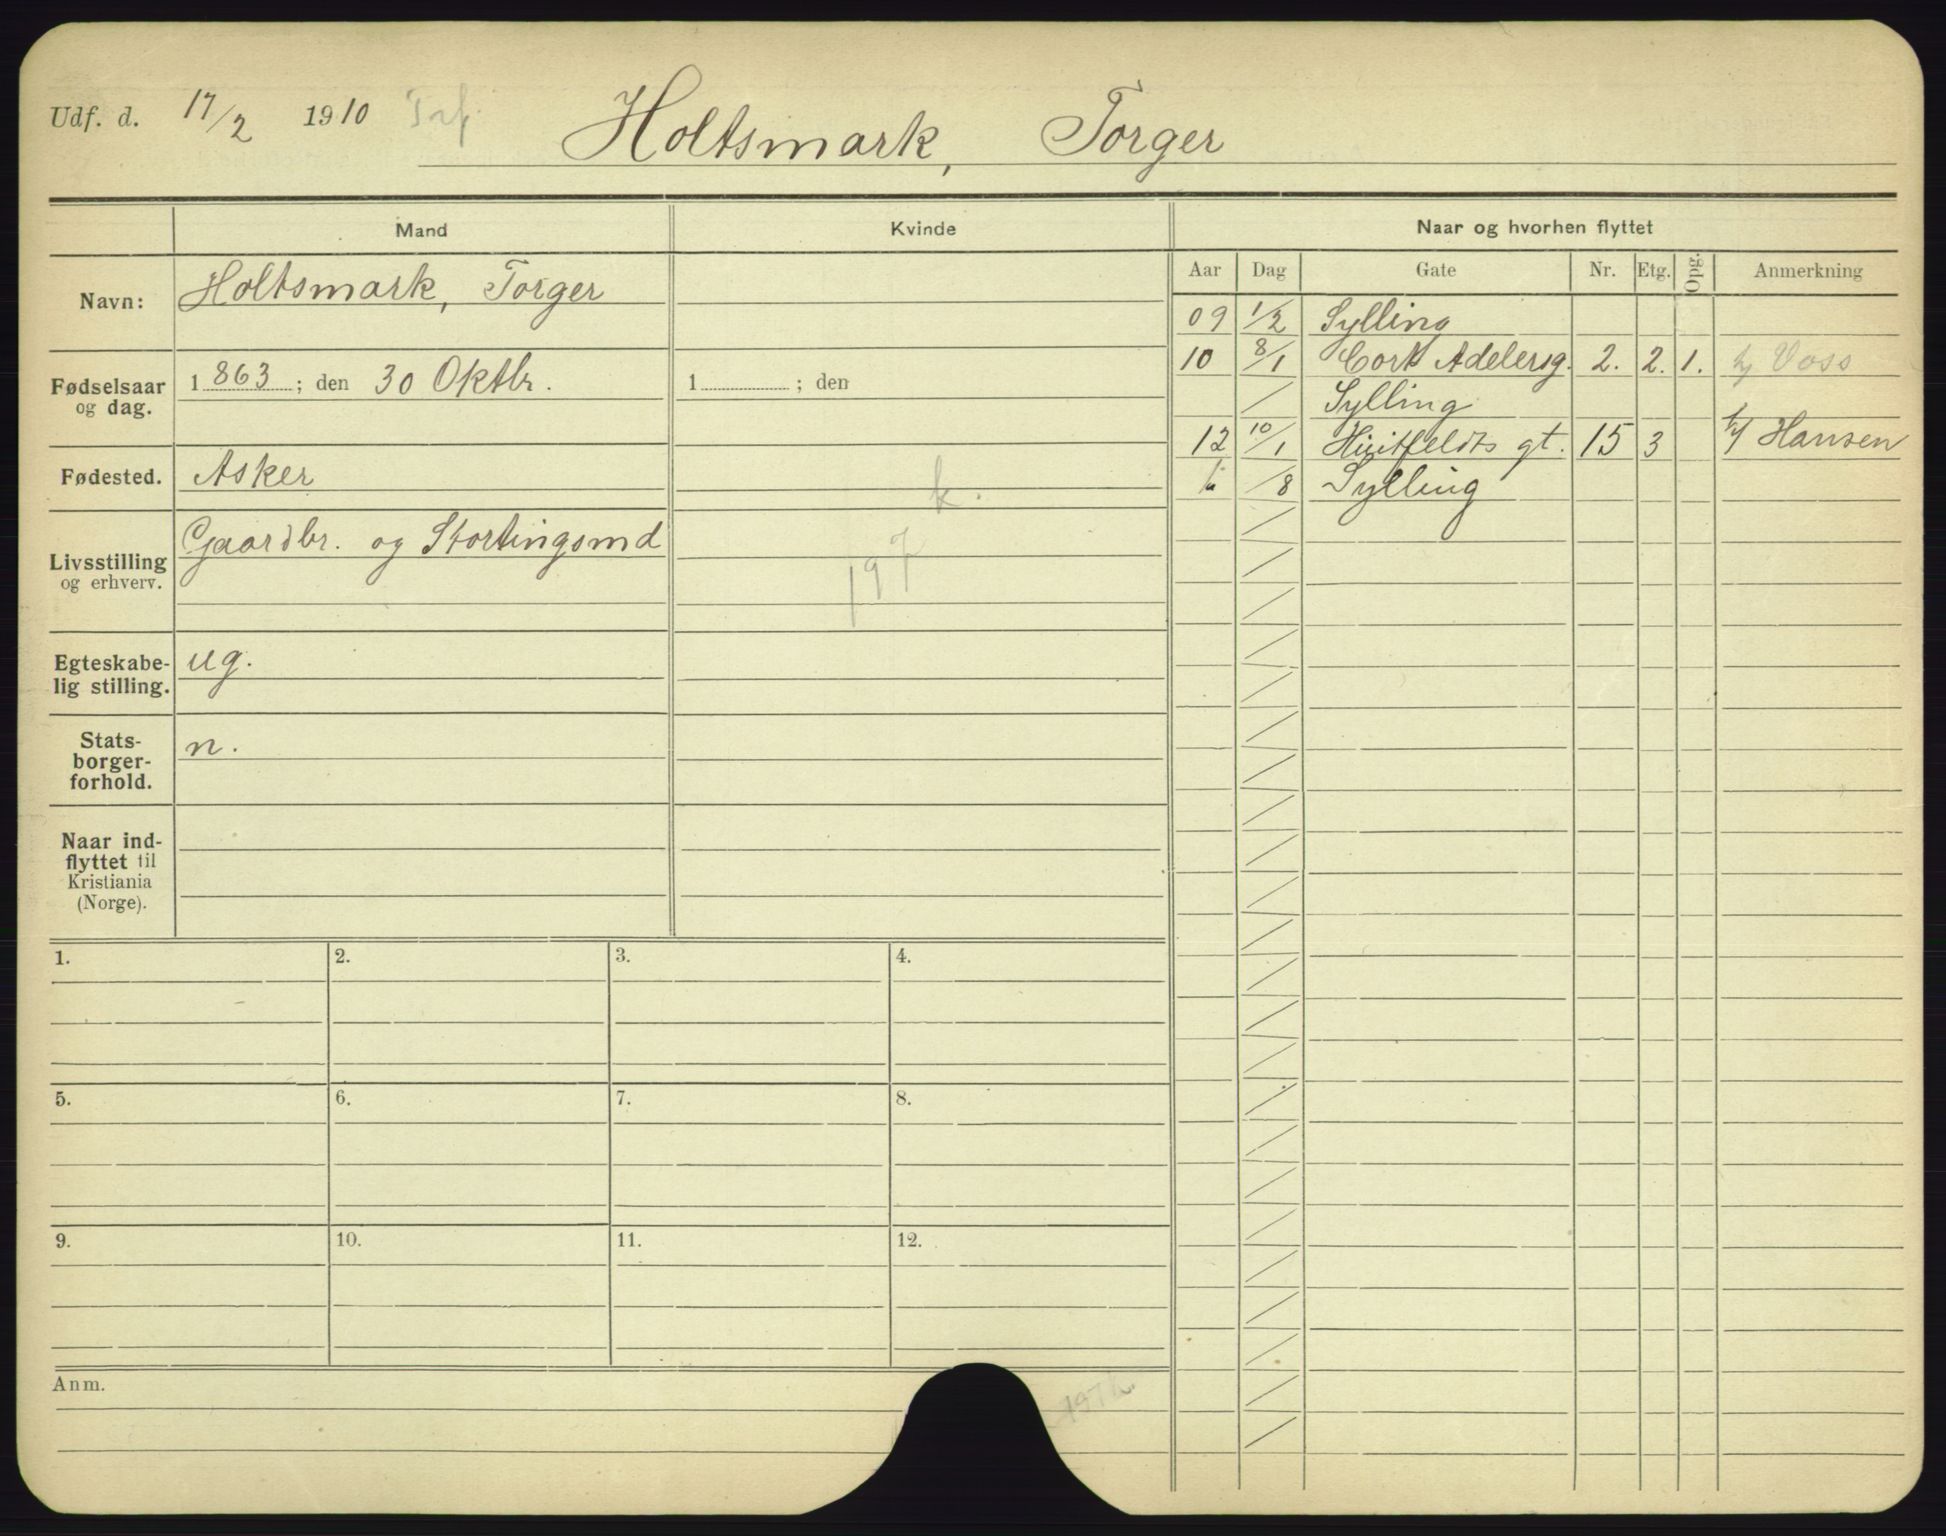 Udf. d. 17/2 1910
Holtsmark, Torger
Mand
Kvinde
Naar og hvorhen flyttet
Aar Dag Gate Nr. Etg. Opg. Anmerkning
Navn: Holtsmark, Torger
Fødselsaar og dag. 1863; den 30 Oktbr.
1 ; den
Fødested. Asker
k.
Livsstilling og erhverv. Gaardbr. og Stortingsmd
197
Egteskabe-
lig stilling. ug.
Stats-
borger-
forhold. n.
Naar ind-
flyttet til
Kristiania
(Norge).
09 1/2 Sylling
10 8/1 Cort Adelersg. 2. 2. 1. h/ Voss
/ Sylling
12 10/1 Huitfeldts gt. 15 3 h/ Hansen
/8 Sylling
1. 2. 3. 4.
5. 6. 7. 8.
9. 10. 11. 12.
Anm.